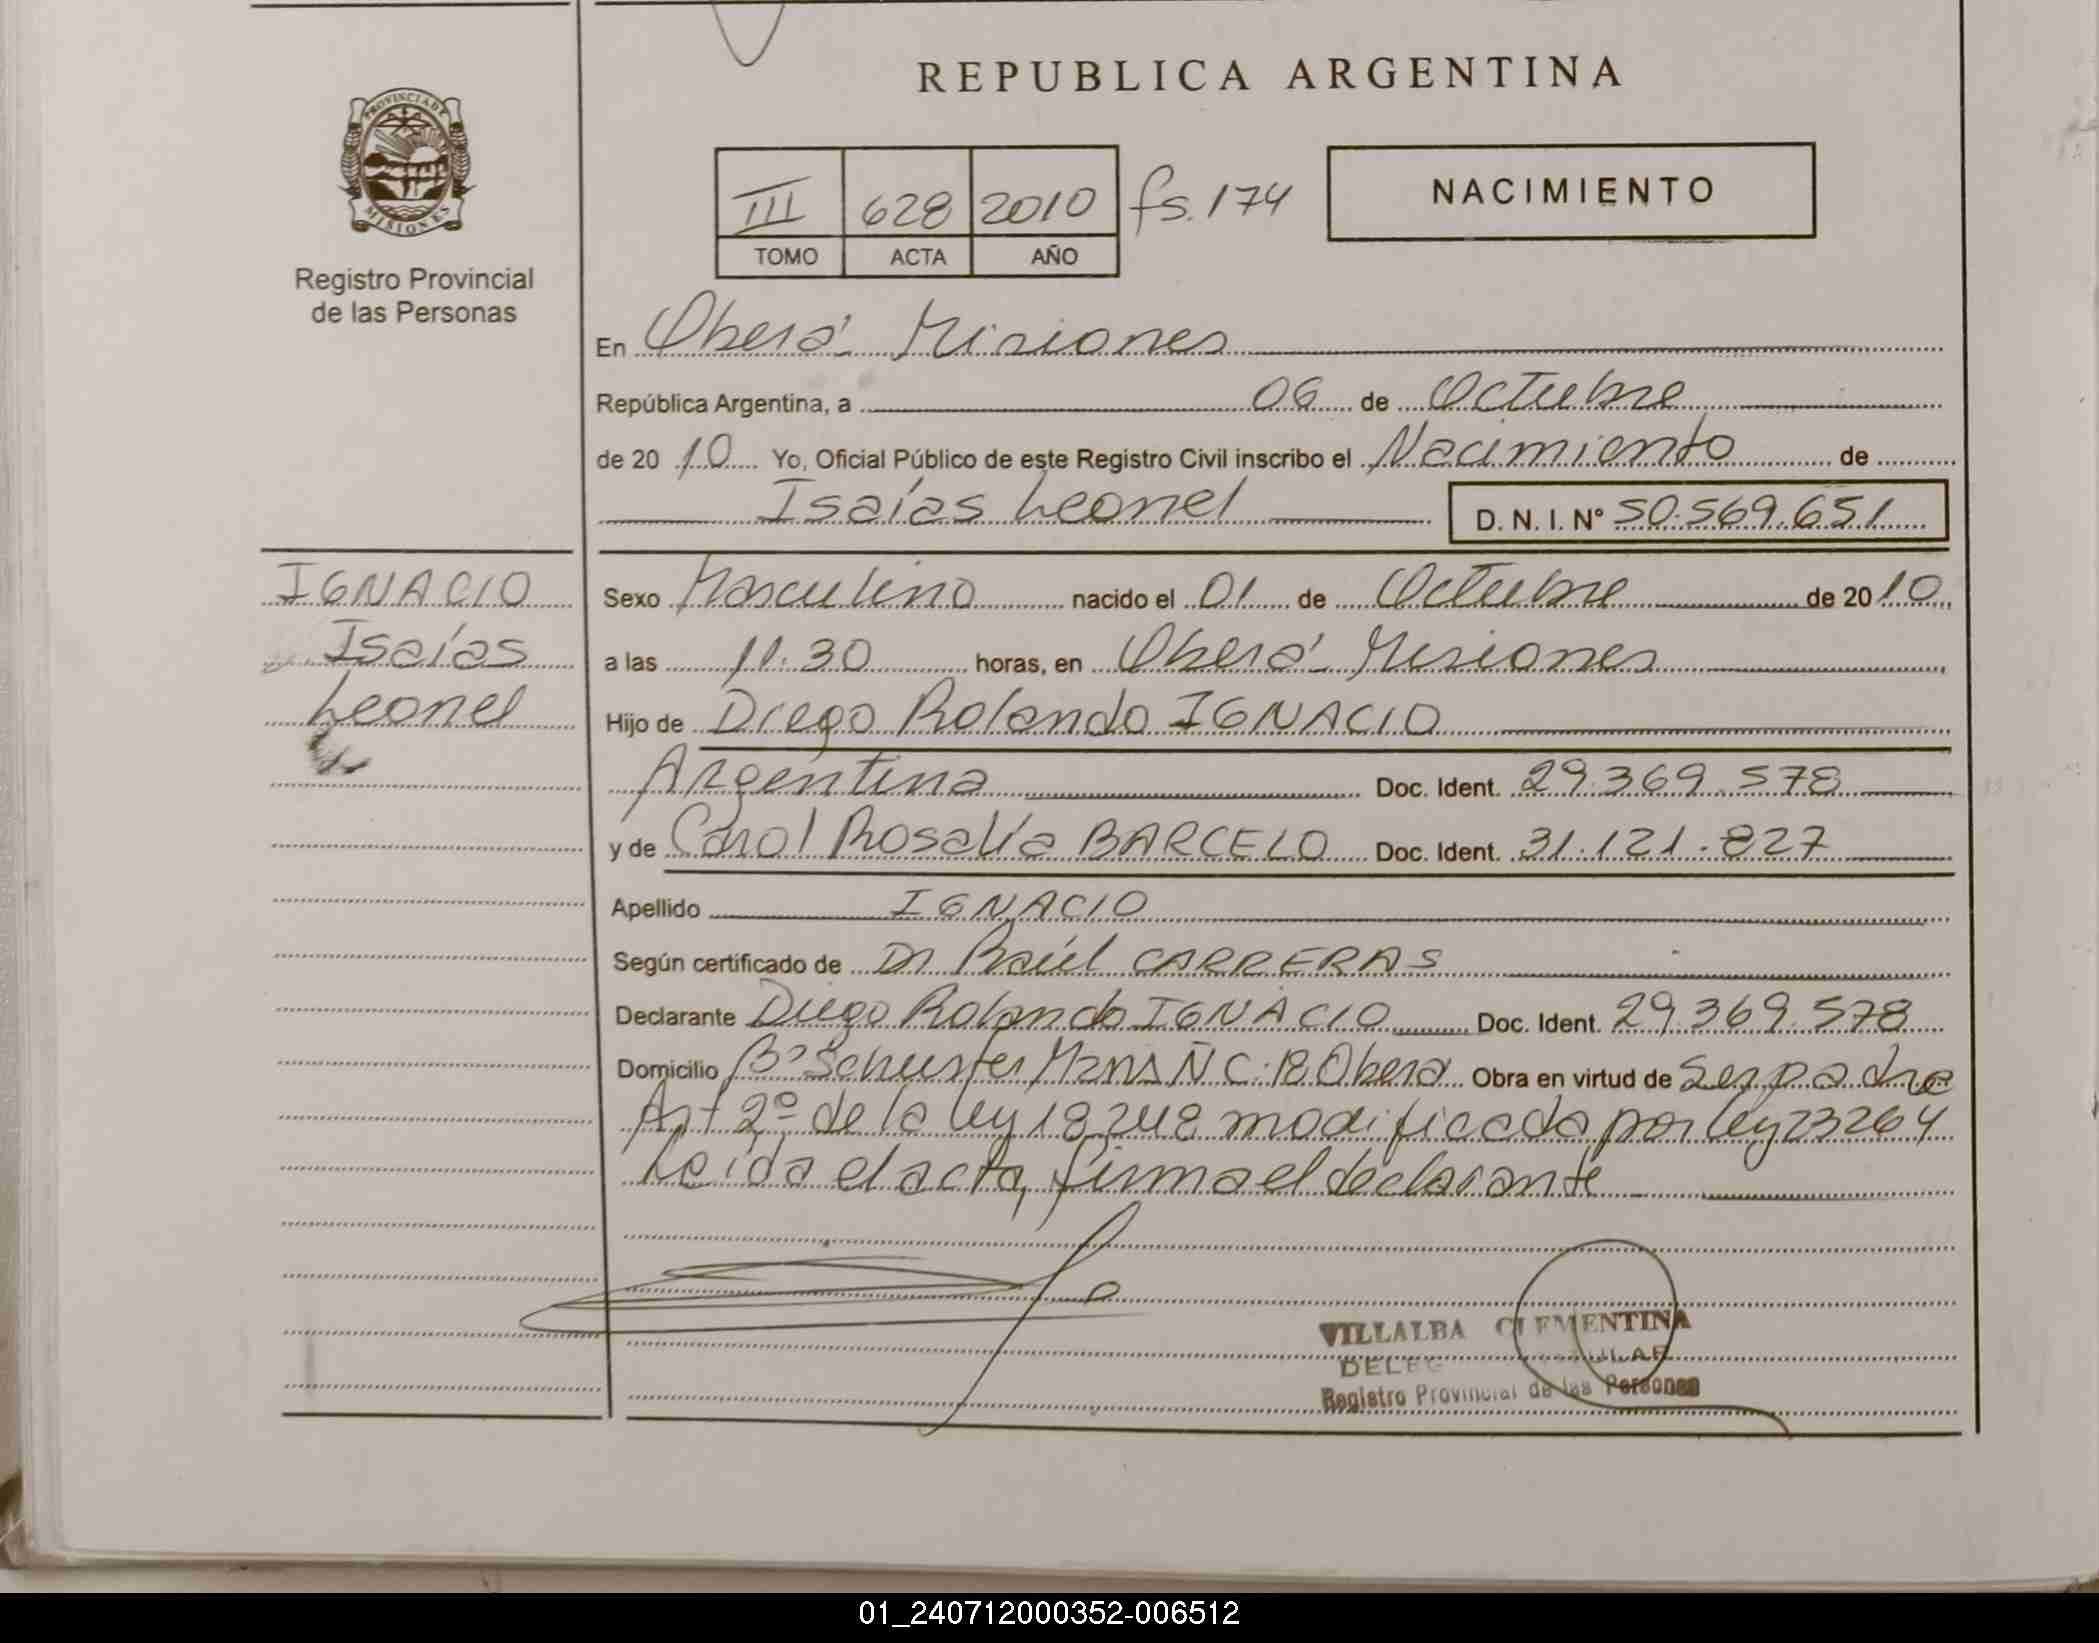 REPUBLICA ARGENTINA
PROVINCIA DE
MISIONES
Registro Provincial
de las Personas
III 628 2010 fs. 174
TOMO ACTA AÑO
NACIMIENTO
En Oberá Misiones
República Argentina, a 06 de Octubre
de 20 10 Yo, Oficial Público de este Registro Civil inscribo el Nacimiento de
Isaías Leonel D. N. I. N° 50.569.651
IGNACIO
Isaías
Leonel
Sexo Masculino nacido el 01 de Octubre de 20 10
a las 11.30 horas, en Oberá Misiones
Hijo de Diego Rolando IGNACIO
Argentina Doc. Ident. 29.369.578
y de Carol Rosalía BARCELO Doc. Ident. 31.121.827
Apellido IGNACIO
Según certificado de Dr Raúl CARRERAS
Declarante Diego Rolando IGNACIO Doc. Ident. 29.369.578
Domicilio B° Schuster Mzna Ñ C: Oberá Obra en virtud de Ser padre
Art 2º de la ley 18248 modificada por ley 23264
Leída el acta, firma el declarante
VILLALBA CLEMENTINA
Registro Provincial de las Personas
01_240712000352-006512